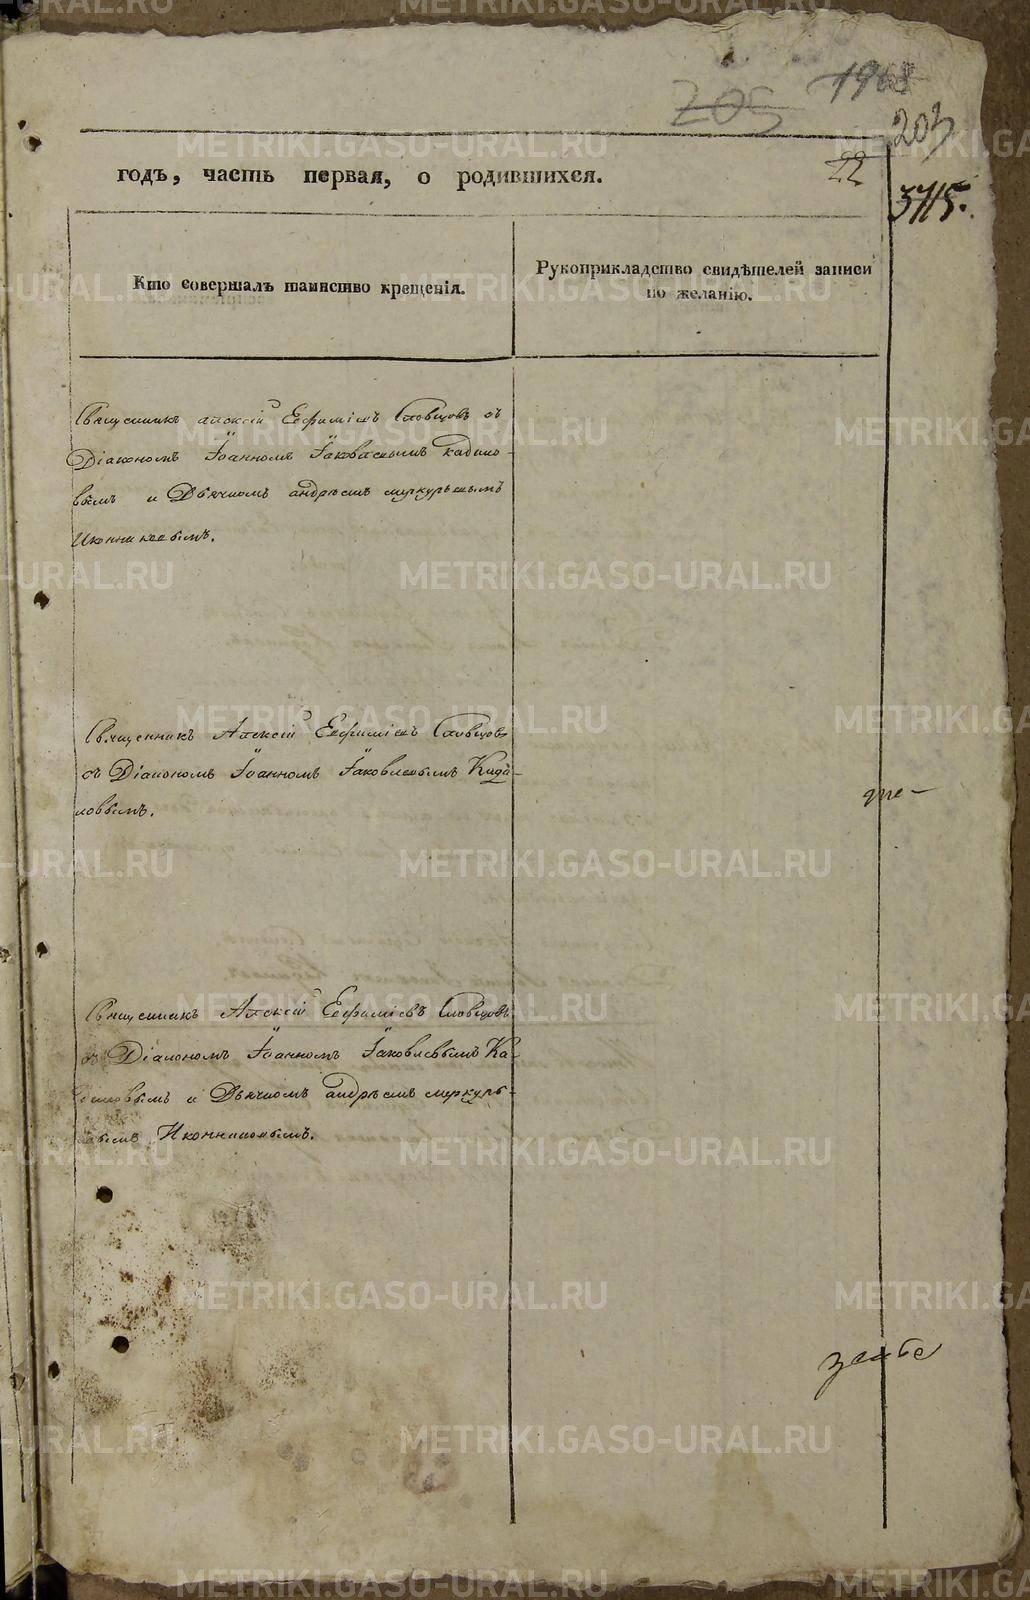 1968
205
203
годъ, часть первая, о родившихся.
22
3715.
Кто совершалъ таинство крещенія.
Рукоприкладство свидѣтелей записи
по желанію.
Священникъ Алексій Евфиміевъ Словцовъ съ
Діакономъ Іоанномъ Іаковлевымъ Кадило-
вымъ и Дьячкомъ андреемъ меркурьевымъ
Иконниковымъ.
Священникъ Алексій Евфиміевъ Словцовъ
съ Діакономъ Іоанномъ Іаковлевымъ Кади-
ловымъ.
Священникъ Алексій Евфиміевъ Словцовъ
съ Діакономъ Іоанномъ Іаковлевымъ Ка-
диловымъ и Дьячкомъ андреемъ меркурь-
евымъ Иконниковымъ.
METRIKI.GASO-URAL.RU